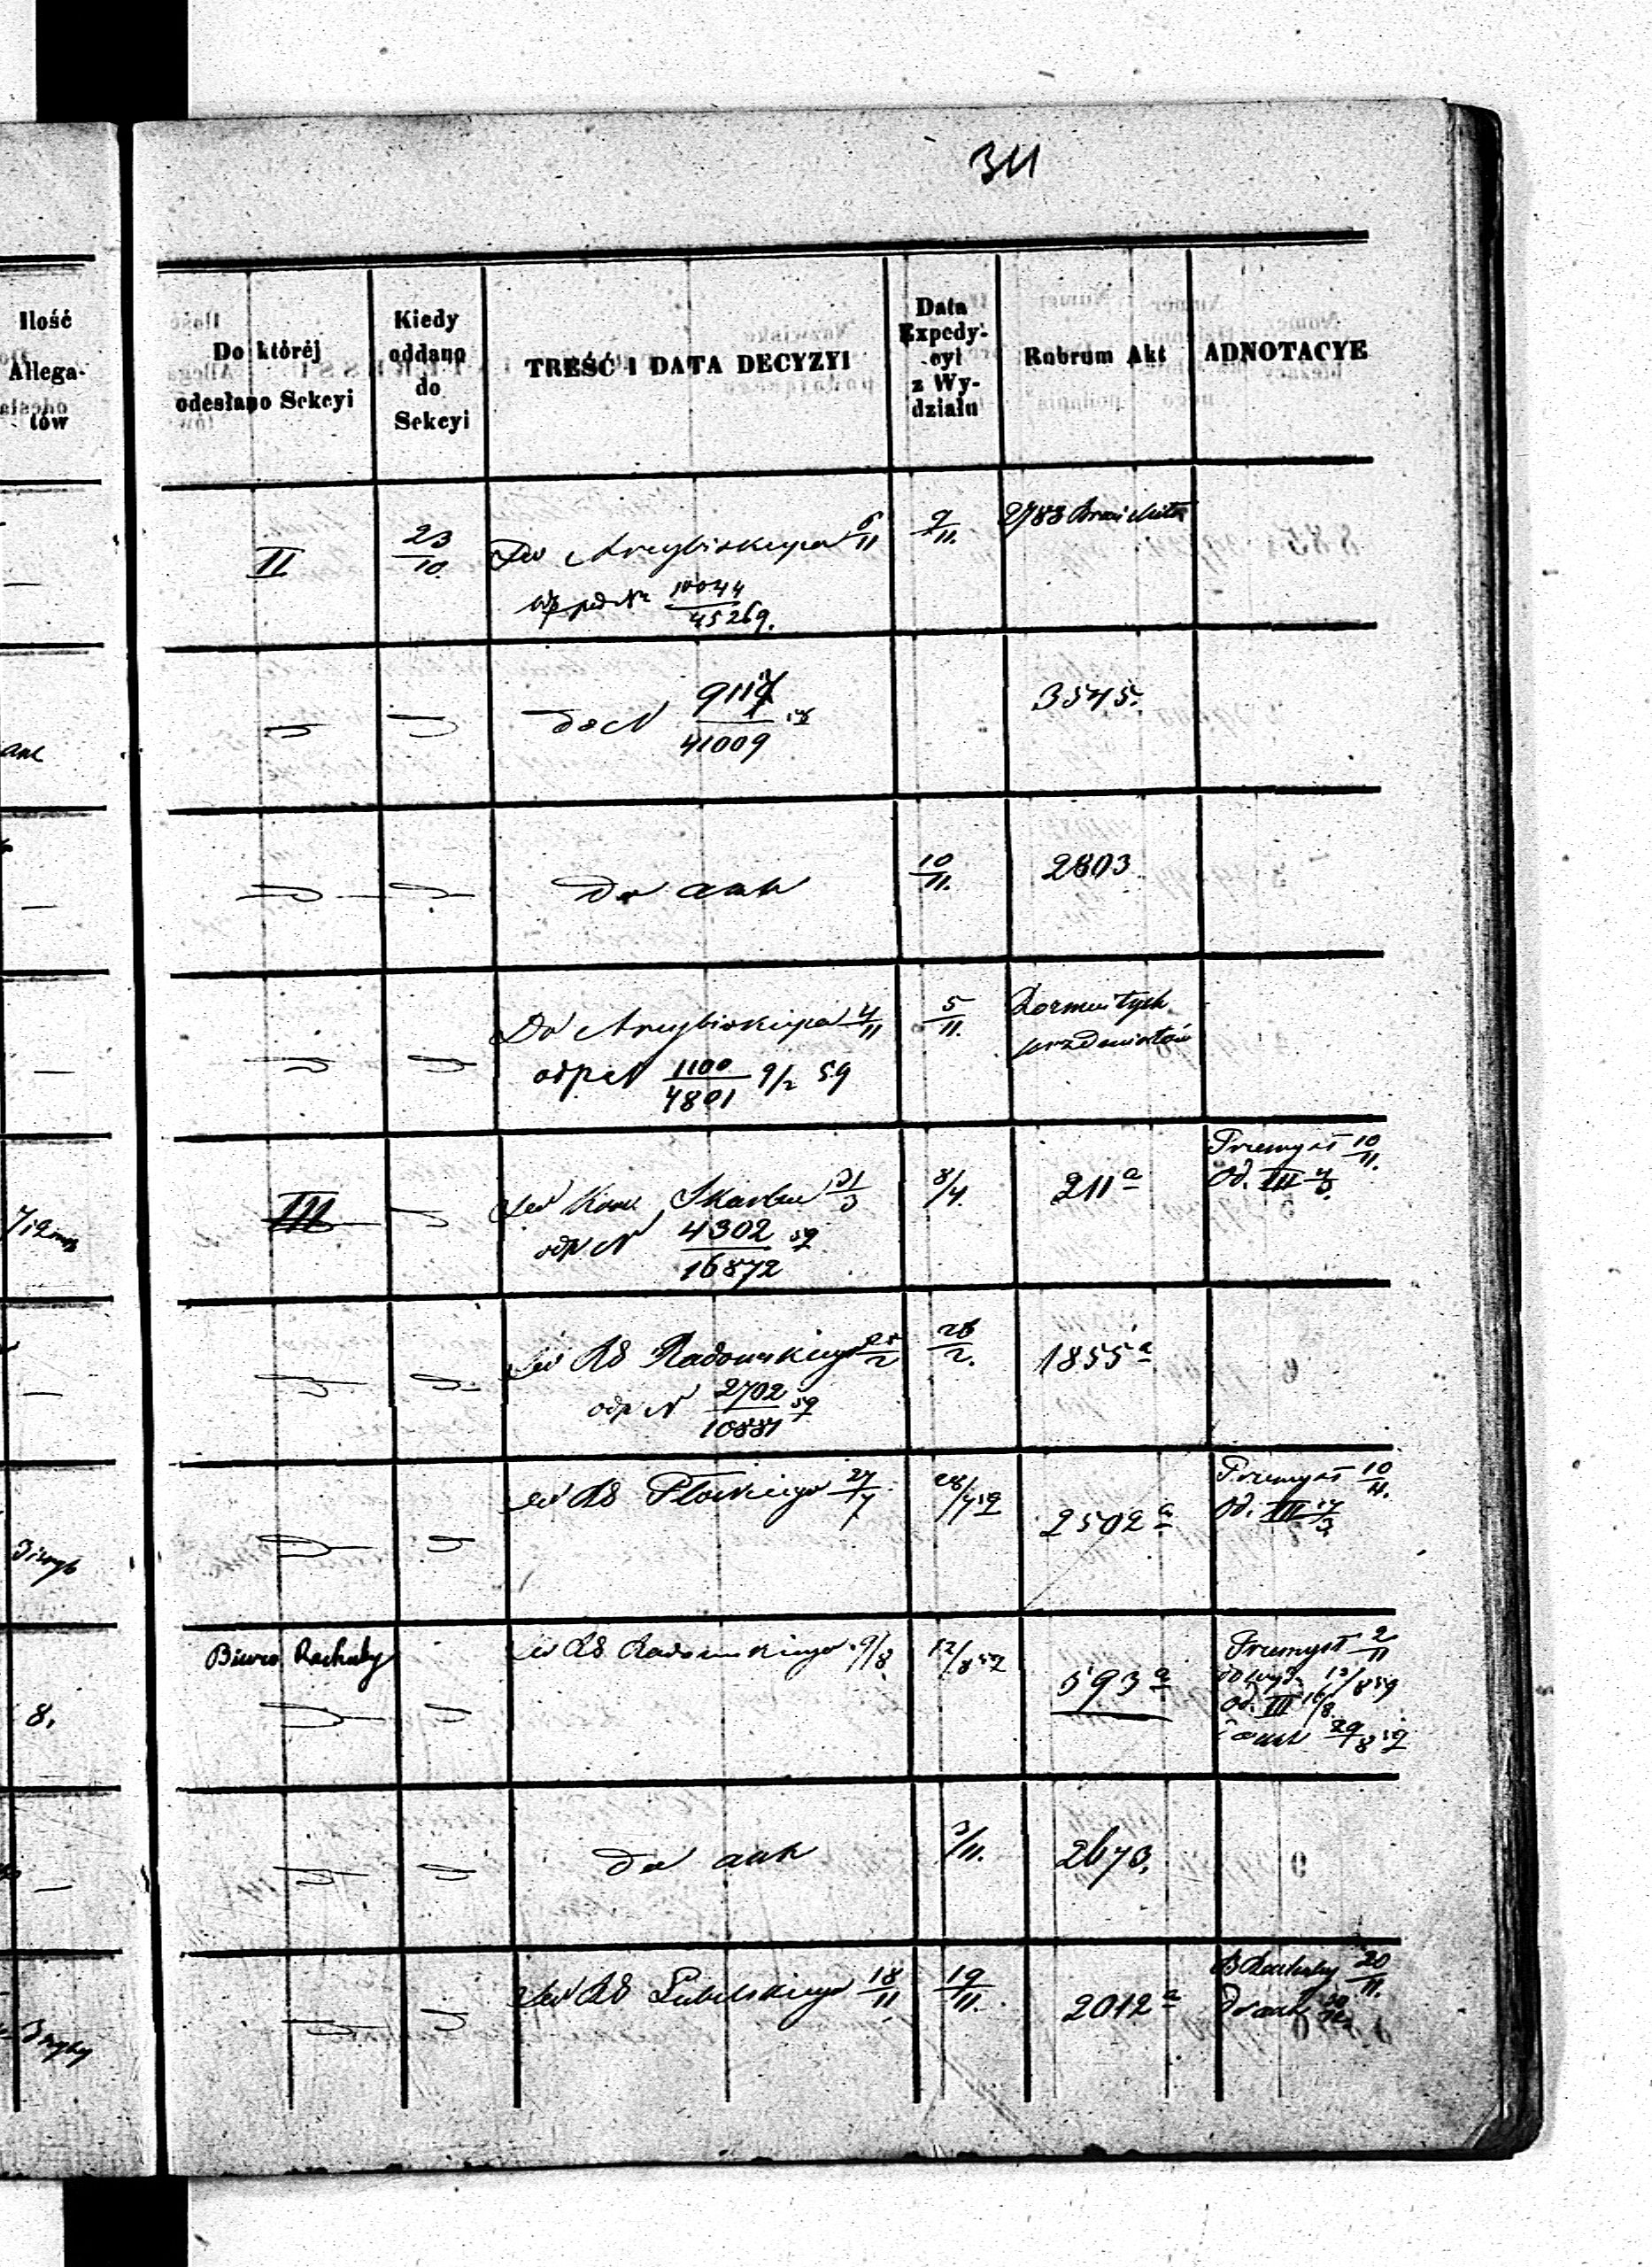 311
Ilość
Allega-
tów
Do której
odesłano Sekcyi
Kiedy
oddano
do
Sekcyi
TREŚĆ I DATA DECYZYI
Data
Expedy-
cyi
z Wy-
działu
Rubrum Akt
ADNOTACYE
II
23/10
Do Arcybiskupa 6/11
pod N 10044/45269.
9/11.
2783
do N 9117/41009
3545.
do akt
10/11.
2803
Do Arcybiskupa 4/11
odp N 1100/4801 9/2 59
5/11.
Rozmaitych
przedmiotów
III
Do Kom Skarbu 31/3
odp N 4302/16872 59
8/4.
211a
Przemysł 10/11.
Od. III
Do RG Radomskiego
odp N 2702/10881 59
26/2.
1855a
Do RG Płockiego 27/4
28/4 59
2502a
Przemysł 10/11.
Od. III
Biuro Rachuby
Do RG Radomskiego 9/8
12/8 59
593a
Przemysł 2/11
13/8 59
Od. III 16/8
akt 29/8 59
8.
do akt
3/11.
2673.
Do RG Lubelskiego 18/11
19/11.
2012a
B Rachuby 20/11.
Do akt